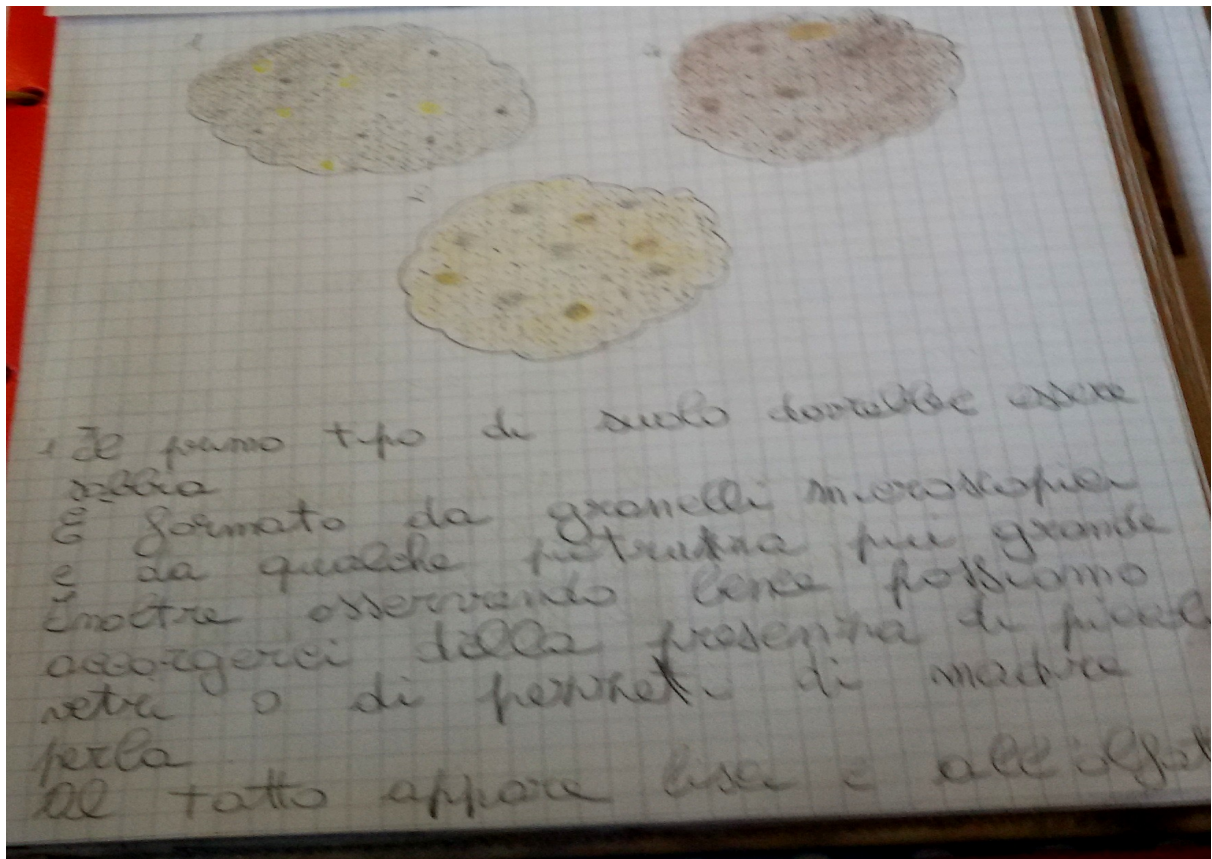 1
2
3
1 Il primo tipo di suolo dovrebbe essere
sabbia
È formato da granelli microscopici
e da qualche pietruzzina più grande
Inoltre osservando bene possiamo
accorgerci della presenza di piccoli
vetri o di pezzzetti di madre
perla
Al tatto appare liscia e all'olfat